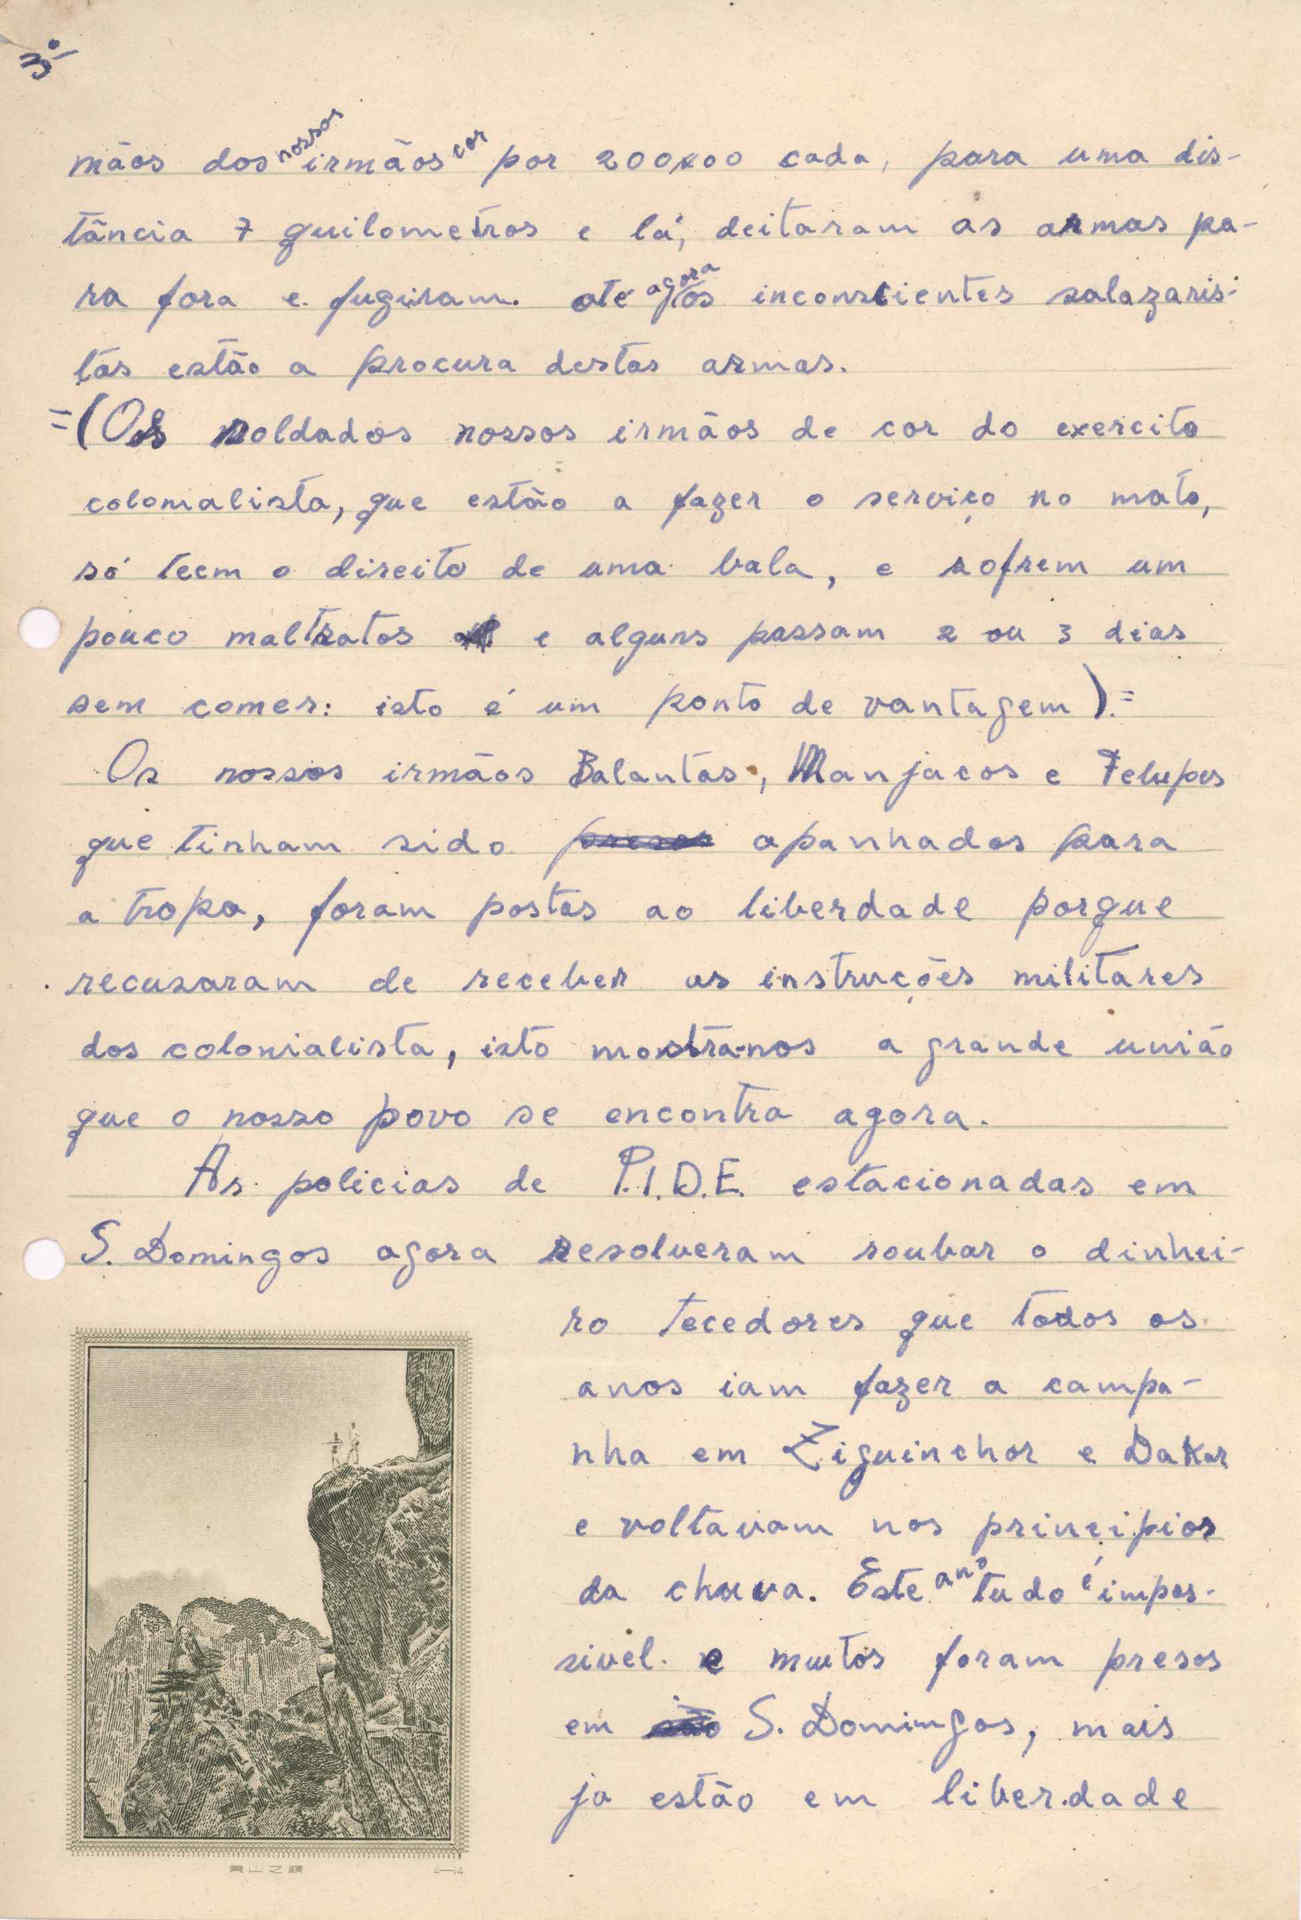 3º
mãos dos nossos irmãos cor por 200x00 cada, para uma dis-
tância 7 quilometros e lá, deitaram as armas pa-
ra fora e fugiram. até agora os inconscientes salazaris-
tas estão a procura destas armas.
=(Os soldados nossos irmãos de cor do exercito
colonialista, que estão a fazer o serviço no mato,
só teem o direito de uma bala, e sofrem um
pouco maltratos e alguns passam 2 ou 3 dias
sem comer: isto é um ponto de vantagem).=
Os nossos irmãos Balantas, Manjacos e Felupes
que tinham sido presos apanhados para
a tropa, foram postos ao liberdade porque
recusaram de receber as instruções militares
dos colonialista, isto mostra-nos a grande união
que o nosso povo se encontra agora.
As policias de P.I.D.E. estacionadas em
S. Domingos agora resolveram roubar o dinhei-
ro tecedores que todos os
anos iam fazer a campa-
nha em Ziguinchor e Dakar
e voltavam nos principios
da chuva. Este ano tudo é impos-
sivel. e muitos foram presos
em são S. Domingos, mais
ja estão em liberdade
黄山之巔